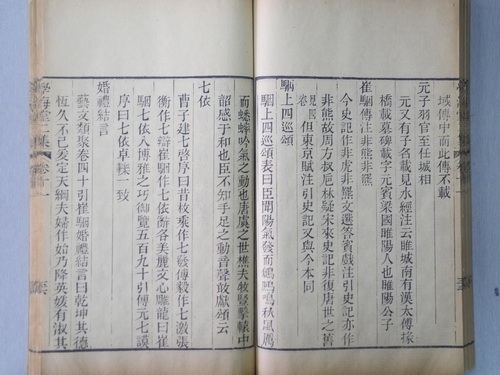 域傳中而此傳不載
元子羽官至任城相
元又有子名載見水經注云睢城南有漢太傅掾
橋載墓碑載字元賓梁國睢陽人也睢陽公子
崔駰傳注非熊非羆
今史記作非虎非羆文選答賓戲注引史記亦作
非熊故周方叔卮林疑宋來史記非復唐世之舊
但東京賦注引史記又與今本同
駰上四巡頌
駰上四巡頌表曰臣聞陽氣發而鶬鶊鳴秋風厲
而蟋蟀吟氣之動也唐虞之世樵夫牧豎擊轅中
韶感于和也臣不知手足之動音聲敢獻頌云
七依
曹子建七啓序曰昔枚乘作七發傅毅作七激張
衡作七辯崔駰作七依辭各美麗文心雕龍曰崔
駰七依入博雅之巧御覽五百九十引傅元七謨
序曰七依卓轢一致
婚禮結言
藝文類聚卷四十引崔駰婚禮結言曰乾坤其德
恆久不已爰定天綱夫婦作始乃降英媛有淑其
學海堂二集 卷十一